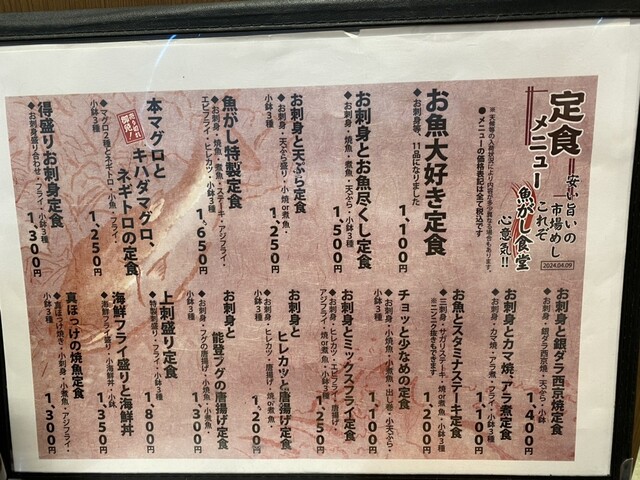 定食メニュー
安い旨いの
市場めし
これぞ
魚がし食堂
心意気!!
2024.04.09
●メニューの価格表記は全て税込です
お魚大好き定食
◆お刺身等、11品になりました
1,100円
お刺身とお魚尽くし定食
◆お刺身・焼魚・煮魚・天ぷら・小鉢3種
1,500円
お刺身と天ぷら定食
◆お刺身・天ぷら盛り・小焼or煮魚・
小鉢3種
1,250円
魚がし特製定食
◆お刺身・焼魚・煮魚・ステーキ・アジフライ・
エビフライ・ヒレカツ・小鉢3種
1,650円
本マグロと
キハダマグロ、
ネギトロの定食
売り切れ御免!
◆マグロ2種とネギトロ・小魚・フライ・
小鉢3種
1,250円
得盛りお刺身定食
◆お刺身盛り合わせ・フライ・小鉢3種
1,300円
お刺身と銀ダラ西京焼定食
◆お刺身・銀ダラ西京焼・天ぷら・小鉢
1,400円
お刺身とカマ焼・アラ煮定食
◆お刺身・カマ焼・アラ煮・フライ・小鉢3種
1,100円
お魚とスタミナステーキ定食
◆三刺身・サガリステーキ・焼or煮魚・小鉢3種
※ニンニク抜きもできます
1,200円
チョッと少なめの定食
◆お刺身・小焼魚・小煮魚・出し巻・小天ぷら・
小鉢3種
1,100円
お刺身とミックスフライ定食
◆お刺身・ヒレカツ・エビフライ・唐揚げ・
アジフライ・焼or煮魚・小鉢3種
1,250円
お刺身と
ヒレカツと唐揚げ定食
◆お刺身・ヒレカツ・唐揚げ・焼or煮魚・
小鉢3種
1,200円
お刺身と
能登フグの唐揚げ定食
◆お刺身・フグの唐揚げ・小焼魚・小煮魚・
小鉢3種
1,300円
上刺盛り定食
◆特製刺盛り・フライ・小鉢3種
1,800円
海鮮フライ盛りと海鮮丼
◆海鮮フライ盛り・小海鮮丼・小鉢
1,350円
真ほっけの焼魚定食
◆真ほっけ焼き・小刺身・小煮魚・アジフライ・
小鉢3種
1,300円